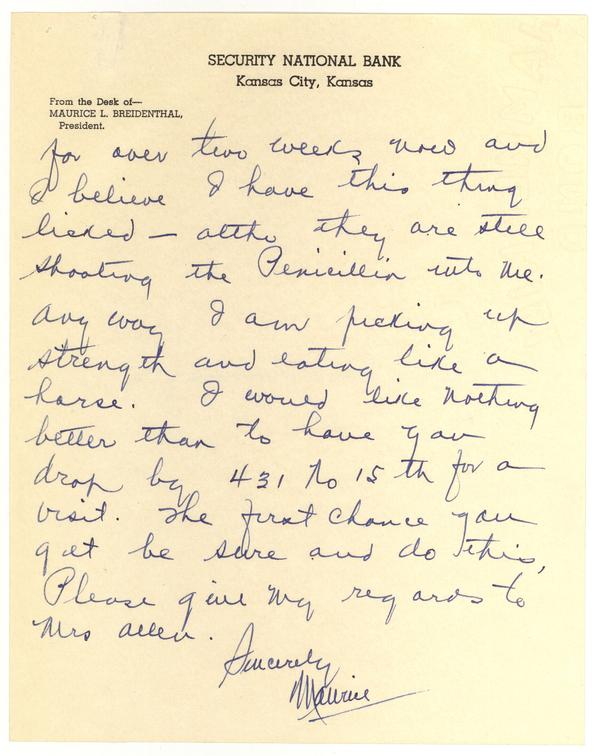 SECURITY NATIONAL BANK
Kansas City, Kansas
From the Desk of—
MAURICE L. BREIDENTHAL,
President.
for over two weeks now and
I believe I have this thing
licked — altho they are still
shooting the Penicillin into me.
Any way I am picking up
strength and eating like a
horse. I would like nothing
better than to have you
drop by 431 No 15th for a
visit. The first chance you
get be sure and do this,
Please give my regards to
Mrs Allen.
Sincerely
Maurice